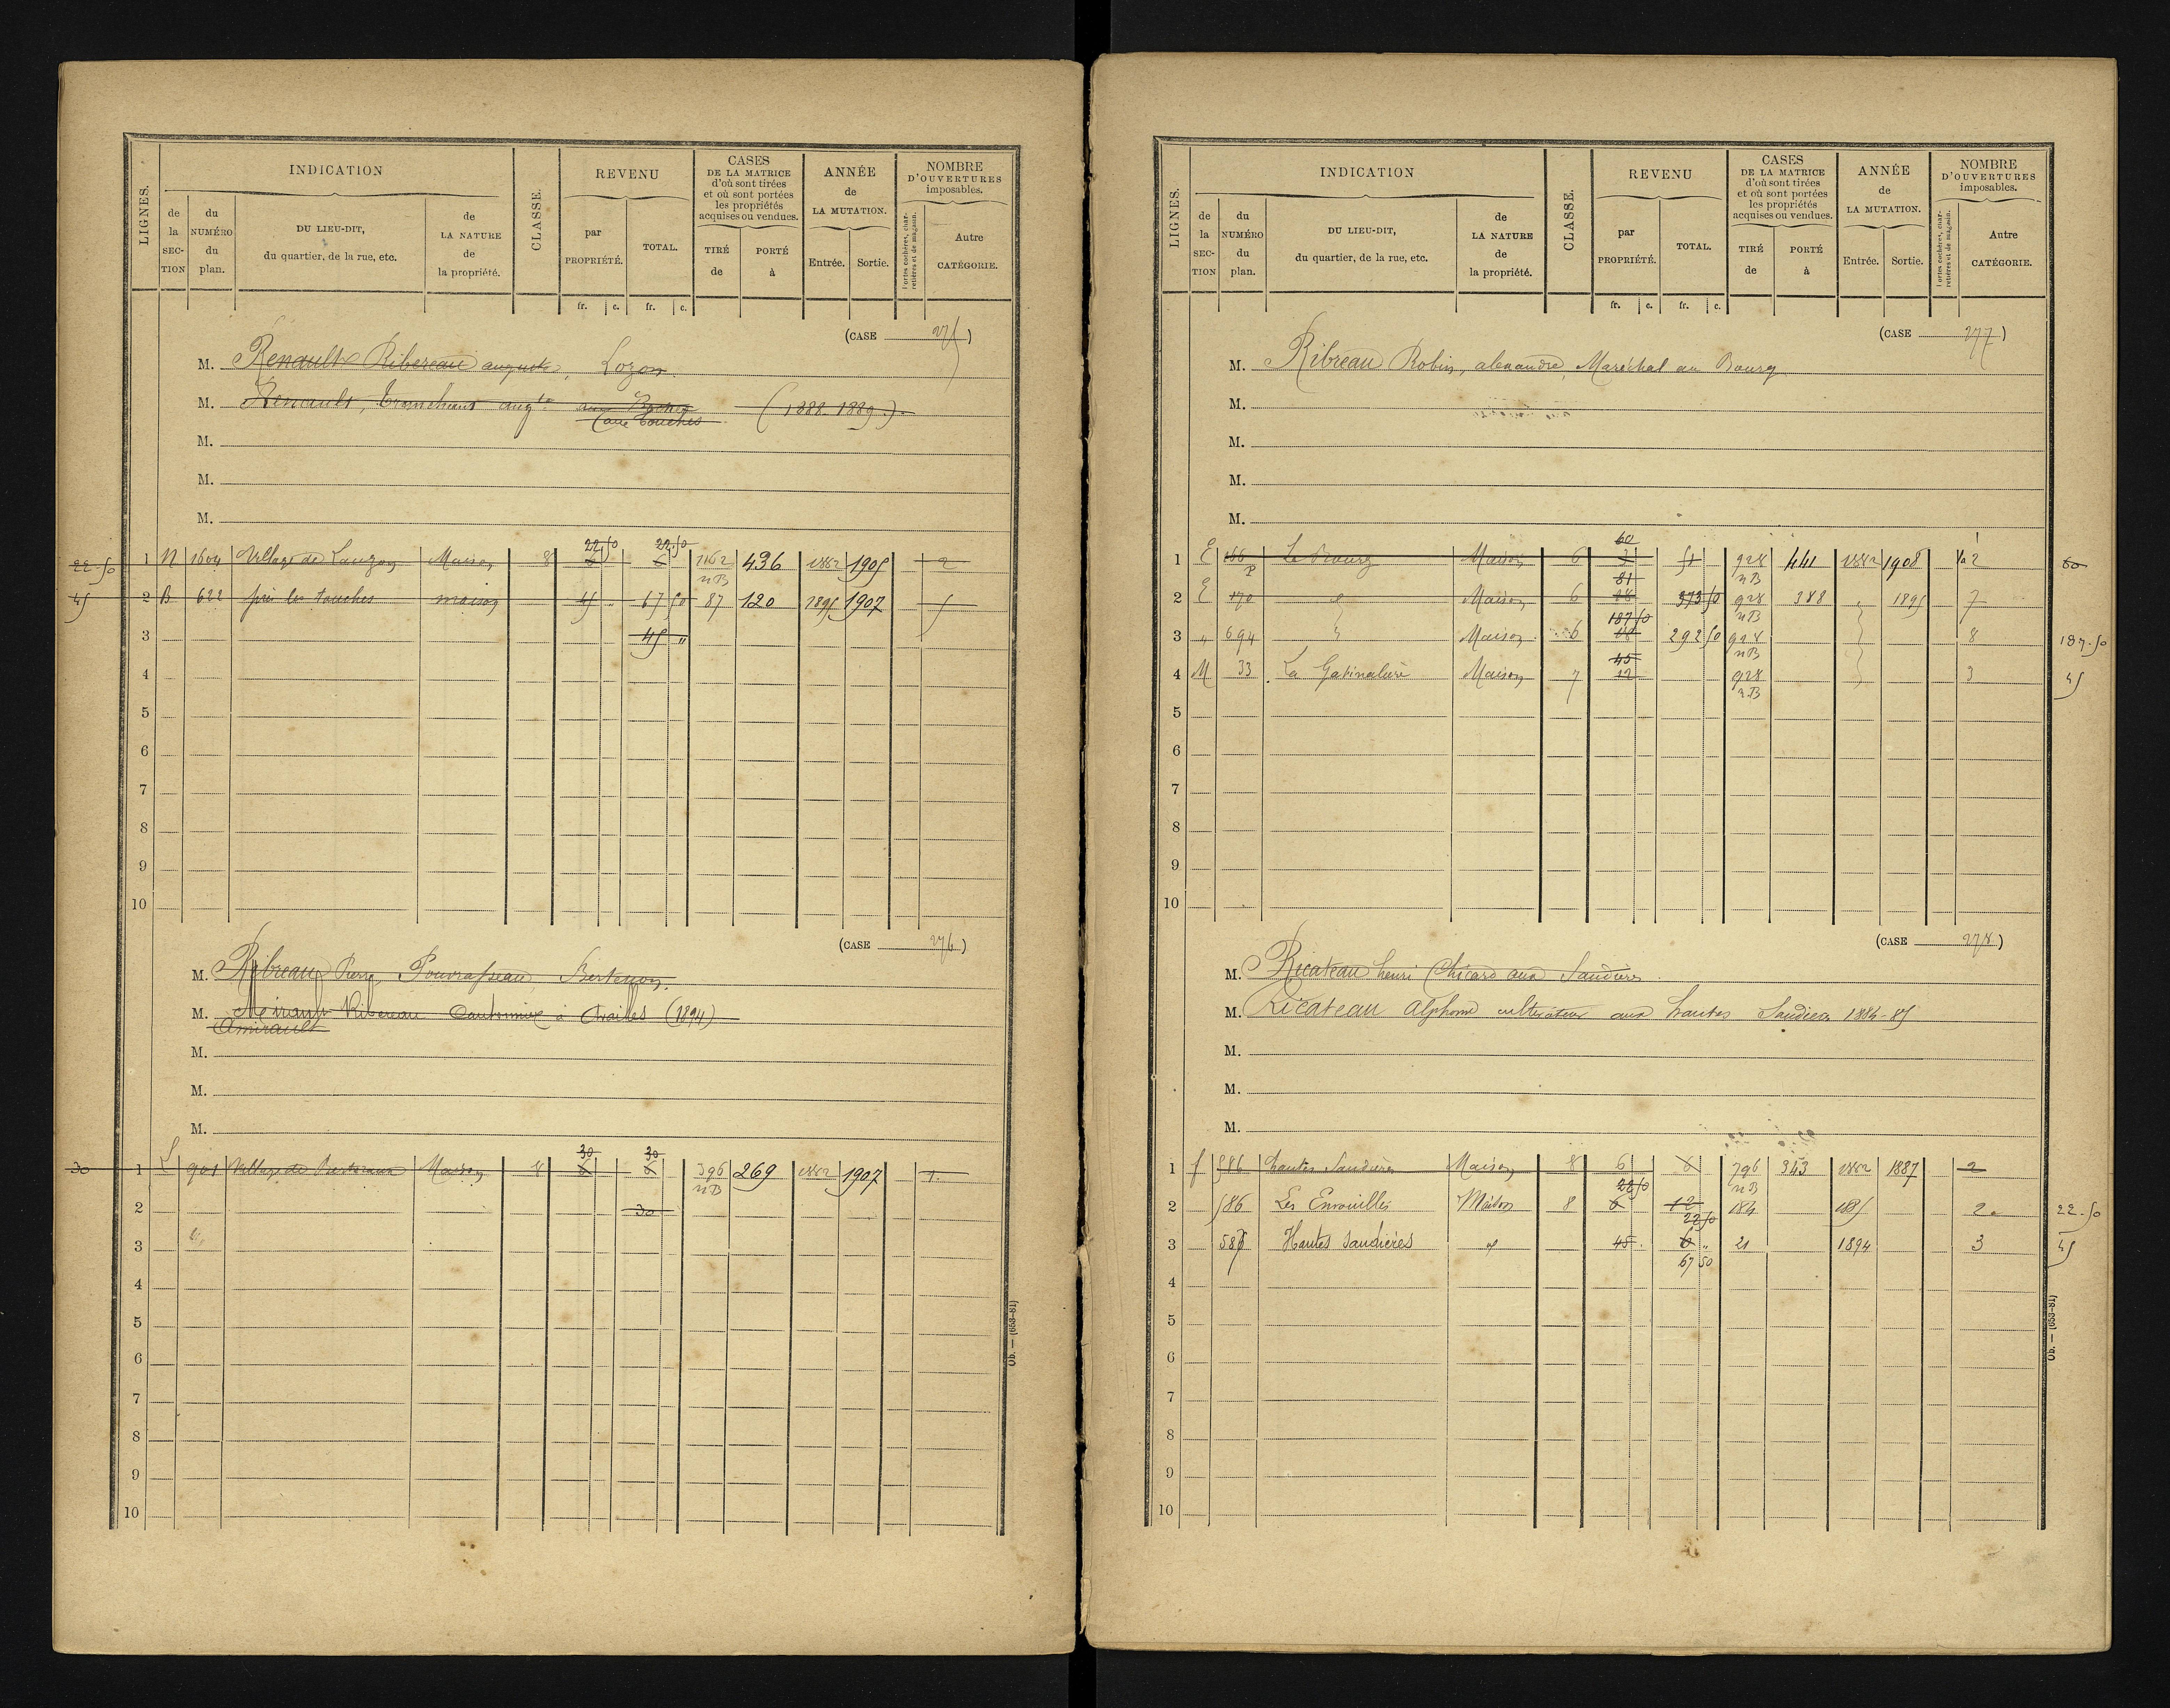 LIGNES.
INDICATION
de la SECTION
du NUMÉRO du plan.
DU LIEU-DIT, du quartier, de la rue, etc.
de LA NATURE de la propriété.
CLASSE.
REVENU
par PROPRIÉTÉ.
TOTAL.
CASES DE LA MATRICE d'où sont tirées et où sont portées les propriétés acquises ou vendues.
TIRÉ de
PORTÉ à
ANNÉE de LA MUTATION.
Entrée.
Sortie.
NOMBRE D'OUVERTURES imposables.
Portes cochères, charretières et de magasin.
Autre CATÉGORIE.
fr. c. fr. c.
(CASE 275)
M. Renault Ribereau auguste, Lozon
M. Renault, Tranchant augte aux Touches (1888-1889).
M.
M.
M.
22.50 22.50
22.50 1 N 1604 Village de Lauzon Maison 8 6 6 1162 nB 436 1882 1905 2
45 2 B 622 près les touches maison 45 67 50 87 120 1895 1907 5
3 45 "
4
5
6
7
8
9
10
(CASE 276)
M. Ribreau Pierre,
M. Ribereau Cantonnier à (1894)
Amirault
M.
M.
M.
30 30
30 1 L 901 Village de Maison 8 6 6 396 nB 269 1882 1907 1
2 30
3
4
5
6
7
8
9
10
Ob. — (653-81)
LIGNES.
INDICATION
de la SECTION
du NUMÉRO du plan.
DU LIEU-DIT, du quartier, de la rue, etc.
de LA NATURE de la propriété.
CLASSE.
REVENU
par PROPRIÉTÉ.
TOTAL.
CASES DE LA MATRICE d'où sont tirées et où sont portées les propriétés acquises ou vendues.
TIRÉ de
PORTÉ à
ANNÉE de LA MUTATION.
Entrée.
Sortie.
NOMBRE D'OUVERTURES imposables.
Portes cochères, charretières et de magasin.
Autre CATÉGORIE.
fr. c. fr. c.
(CASE 277)
M. Ribreau Robin, alexandre, Maréchal au Bourg
M.
M.
M.
M.
60
1 E 166 P Le Bourg Maison 6 51 928 nB 441 1882 1908 2 60
81
2 E 170 " Maison 6 18 373 50 928 nB 388 " 1895 7
187 50
3 " 694 " Maison 6 292 50 928 nB 8 187.50
45
4 M 33 La Gatinalière Maison 7 12 928 nB 3 45
5
6
7
8
9
10
(CASE 278)
M. Ricateau henri Chicard aux Saudières
M. Ricateau Alphonse cultivateur aux hautes Saudières 1884-85
M.
M.
M.
1 f 586 hautes Saudières Maison 8 6 6 796 nB 343 1882 1887 2
22 50
2 586 Les Maison 8 6 12 184 1885 2 22.50
22 50
3 Hautes Saudières " 45 6 " 21 1894 3 45
67 50
4
5
6
7
8
9
10
Ob. — (653-81)